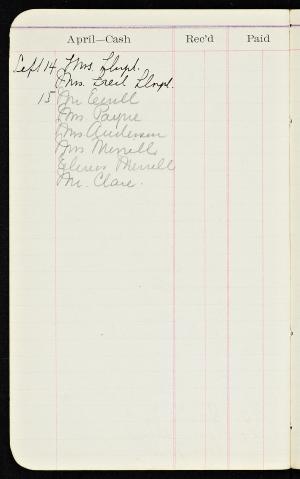 April—Cash Rec'd Paid
Sept 14 Mrs. Lloyd.
Mrs. Fred Lloyd.
15 Mr
Mrs. Payne
Mrs Anderson
Mrs Merrell
Merrell
Mr. Clare.